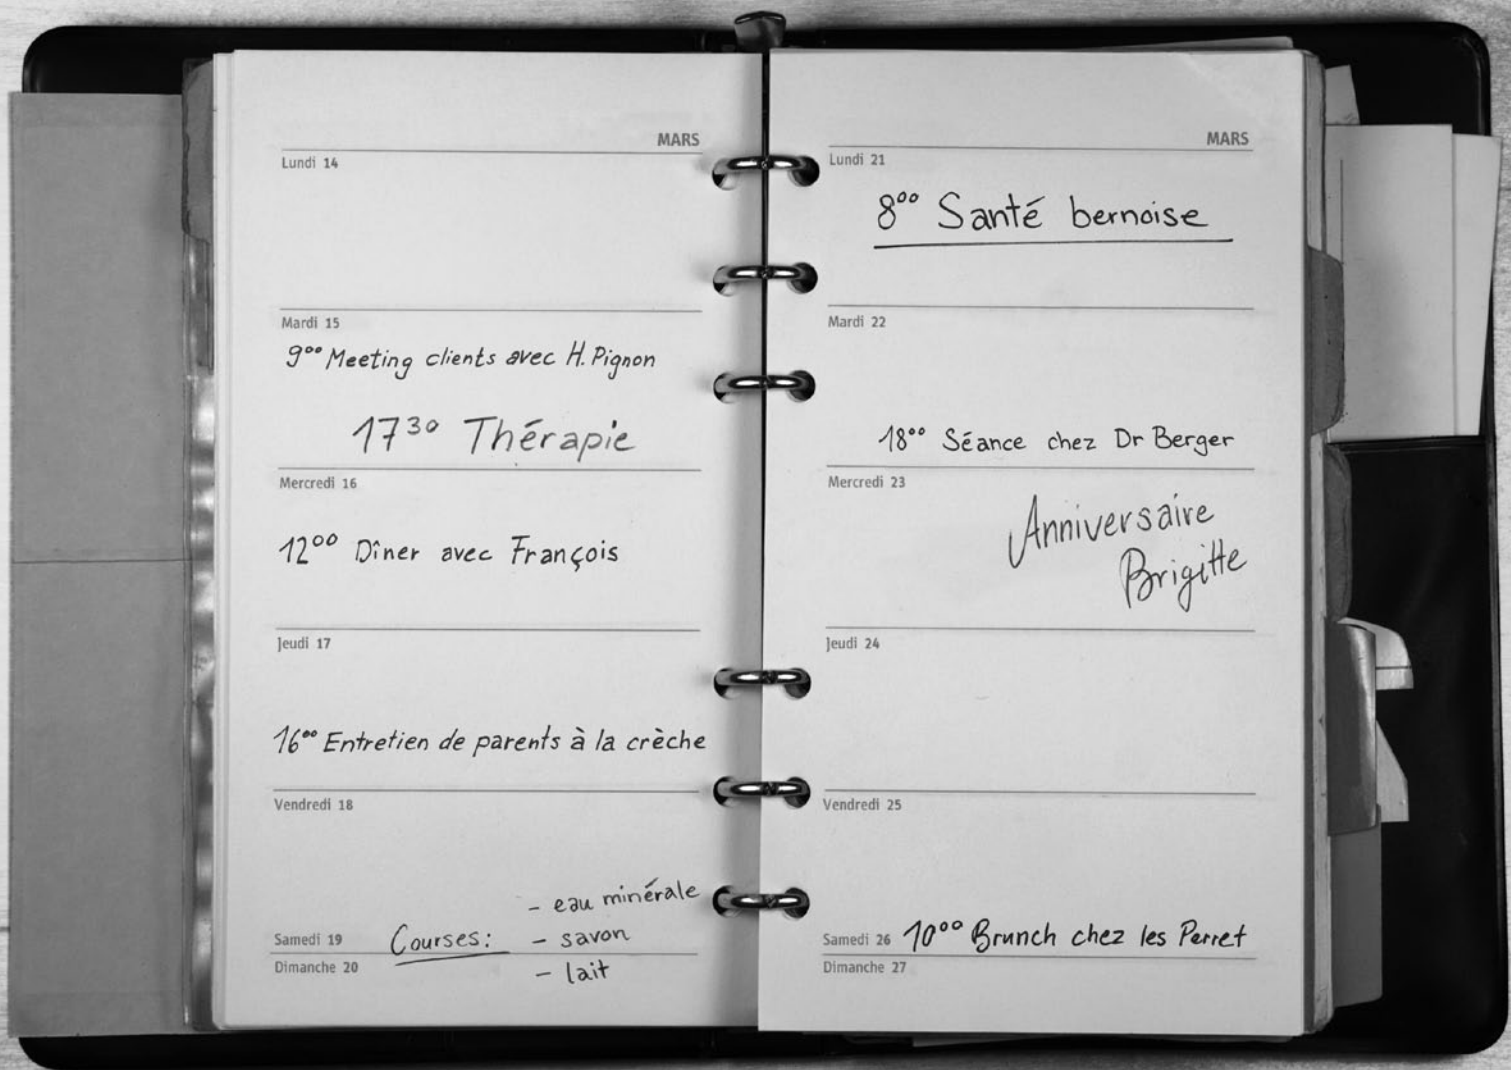 MARS
Lundi 14
Mardi 15
9⁰⁰ Meeting clients avec H. Pignon
17³⁰ Thérapie
Mercredi 16
12⁰⁰ Dîner avec François
Jeudi 17
16⁰⁰ Entretien de parents à la crèche
Vendredi 18
Samedi 19
Courses:
- eau minérale
- savon
- lait
Dimanche 20
MARS
Lundi 21
8⁰⁰ Santé bernoise
Mardi 22
18⁰⁰ Séance chez Dr Berger
Mercredi 23
Anniversaire
Brigitte
Jeudi 24
Vendredi 25
Samedi 26 10⁰⁰ Brunch chez les Perret
Dimanche 27